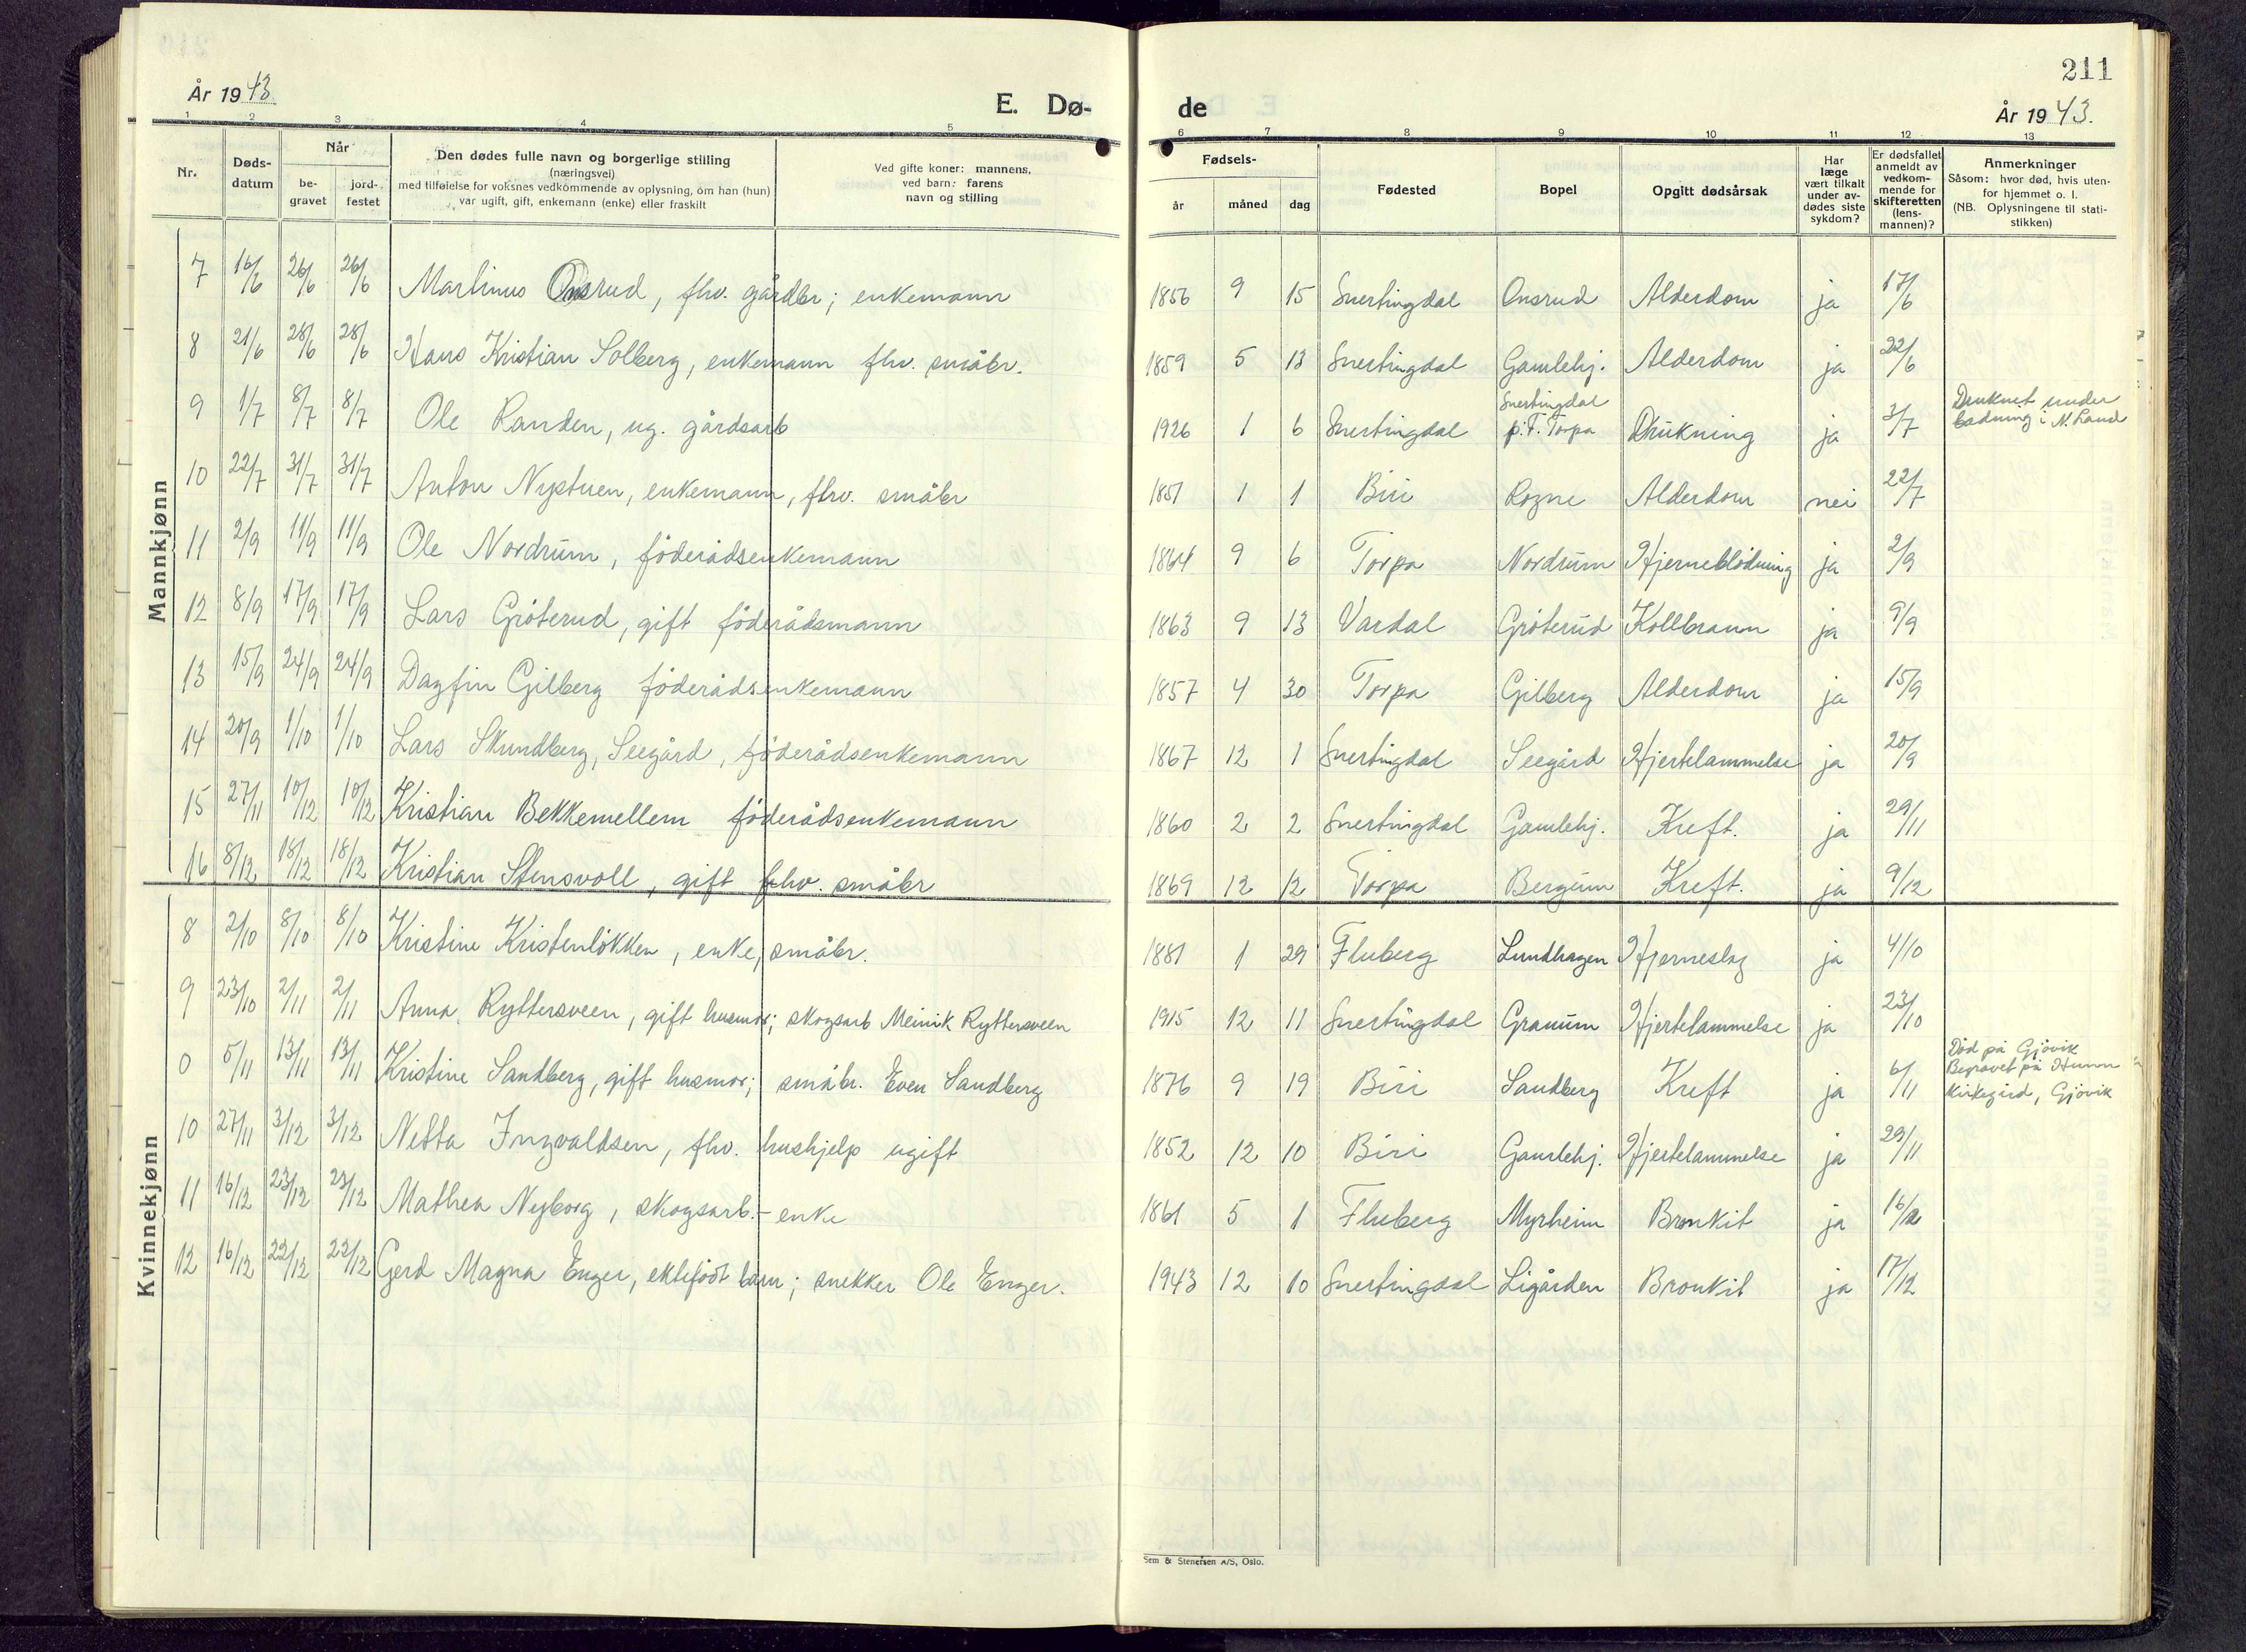 211
År 1943
E. Dø-
de
År 1943.
1 2 3 4 5 6 7 8 9 10 11 12 13
Nr.
Døds-
datum
Når
be-
gravet
jord-
festet
Den dødes fulle navn og borgerlige stilling
(næringsvei)
med tilføielse for voksnes vedkommende av oplysning, om han (hun)
var ugift, gift, enkemann (enke) eller fraskilt
Ved gifte koner: mannens,
ved barn: farens
navn og stilling
Fødsels-
år
måned
dag
Fødested
Bopel
Opgitt dødsårsak
Har
læge
vært tilkalt
under av-
dødes siste
sykdom?
Er dødsfallet
anmeldt av
vedkom-
mende for
skifteretten
(lens-
mannen)?
Anmerkninger
Såsom: hvor død, hvis uten-
for hjemmet o. l.
(NB. Oplysningene til stati-
stikken)
Mannkjønn
7 16/6 26/6 26/6 Martinus Onsrud, fhv. gårdbr; enkemann 1856 9 15 Snertingdal Onsrud Alderdom ja 17/6
8 21/6 28/6 28/6 Hans Kristian Solberg, enkemann fhv. småbr. 1859 5 13 Snertingdal Gamlehj. Alderdom ja 22/6
9 1/7 8/7 8/7 Ole Randen, ug. gårdsarb 1926 1 6 Snertingdal Snertingdal p.T. Torpa Drukning ja 3/7 Druknet under
badning i N. Land
10 22/7 31/7 31/7 Anton Nystuen, enkemann, fhv. småbr 1851 1 1 Biri Rogne Alderdom nei 22/7
11 2/9 11/9 11/9 Ole Nordrum, föderådsenkemann 1864 9 6 Torpa Nordrum Hjerneblödning ja 2/9
12 8/9 17/9 17/9 Lars Gröterud, gift föderådsmann 1863 9 13 Vardal Gröterud Kollbrann ja 9/9
13 15/9 24/9 24/9 Dagfin Gilberg föderådsenkemann 1857 4 30 Torpa Gilberg Alderdom ja 15/9
14 20/9 1/10 1/10 Lars Skundberg, Seegård, föderådsenkemann 1867 12 1 Snertingdal Seegård Hjertelammelse ja 20/9
15 27/11 10/12 10/12 Kristian Bekkemellem föderådsenkemann 1860 2 2 Snertingdal Gamlehj. Kreft. ja 29/11
16 8/12 18/12 18/12 Kristian Stensvoll, gift fhv. småbr 1869 12 12 Torpa Bergum Kreft. ja 9/12
Kvinnekjønn
8 2/10 8/10 8/10 Kristine Kristenlökken, enke, småbr. 1881 1 29 Fluberg Lundhagen Hjerneslag ja 4/10
9 23/10 2/11 2/11 Anna Ryttersveen, gift husmor; skogsarb Meinik Ryttersveen 1915 12 11 Snertingdal Granum Hjertelammelse ja 23/10
0 5/11 13/11 13/11 Kristine Sandberg, gift husmor; småbr. Even Sandberg 1876 9 19 Biri Sandberg Kreft ja 6/11 Död på Gjövik
Begravet på Hunn
Kirkegård, Gjövik
10 27/11 3/12 3/12 Netta Ingvaldsen, fhv. hushjelp ugift 1852 12 10 Biri Gamlehj. Hjertelammelse ja 29/11
11 16/12 23/12 23/12 Mathea Nyborg, skogsarb.- enke 1861 5 1 Fluberg Myrheim Bronkit ja 16/12
12 16/12 22/12 22/12 Gerd Magna Enger, ektefödt barn; snekker Ole Enger. 1943 12 10 Snertingdal Ligården Bronkit ja 17/12
Sem & Stenersen A/S, Oslo.